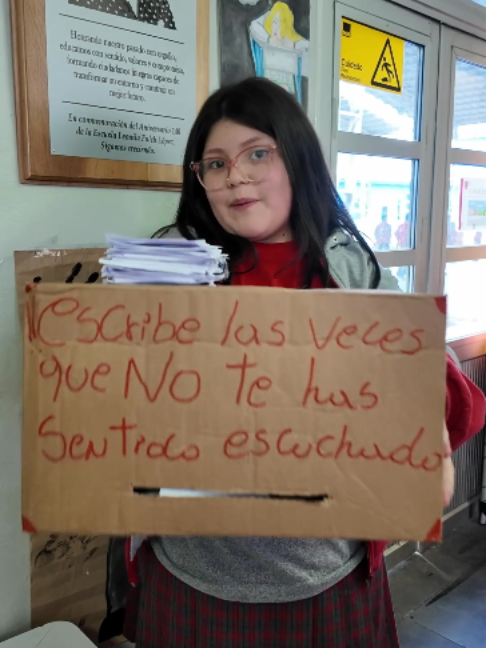 Honrando nuestro pasado con orgullo,
educamos con sentido, valores y
formando ciudadanos íntegros capaces de
transformar su entorno y construir un
mejor futuro.
En conmemoración del Aniversario
de la Escuela
Sigamos creciendo.
Cuidado
escribe las veces
que No te has
Sentido escuchado